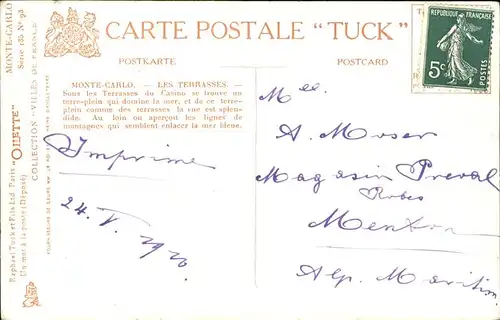 CARTE POSTALE "TUCK"
POSTKARTE
POSTCARD
REPUBLIQUE FRANÇAISE
5c
POSTES
MONTE-CARLO. — LES TERRASSES. —
Sous les Terrasses du Casino se trouve un
terre-plein qui domine la mer, et de ce terre-
plein comme des terrasses la vue est splen-
dide. Au loin on aperçoit les lignes de
montagnes qui semblent enlacer la mer bleue.
Imprimé
24. V. 1910.
Mlle.
A. Moser
Magasin Preval
Robes
Menton
Alp. Maritim
MONTE-CARLO
Série 135 No 98
"OILETTE"
COLLECTION "VILLES DE FRANCE"
Raphael Tuck et Fils Ltd. Paris
Un mot à la poste (Déposé)